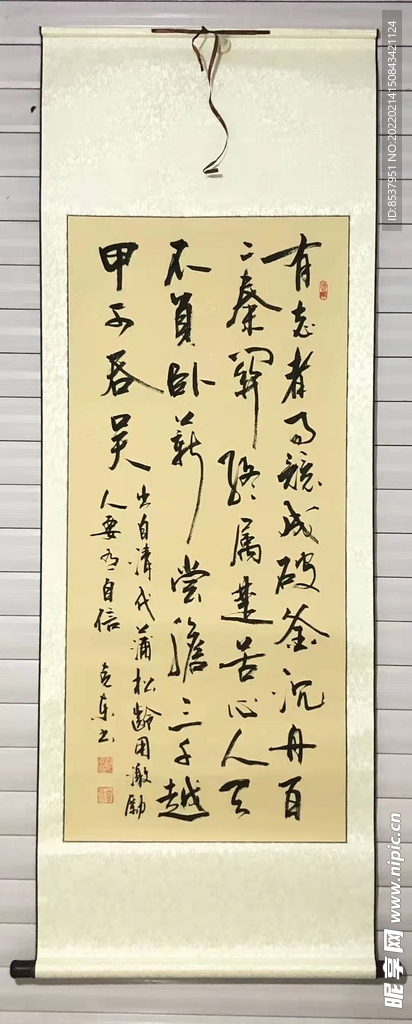 有志者事竟成破釜沉舟百
二秦關终属楚苦心人天
不負卧薪嘗膽三千越
甲可吞吴
出自清代蒲松齡用激勵
人要有自信 东书
ID:8537951 NO:20220214150843421124
昵享网 www.nipic.cn